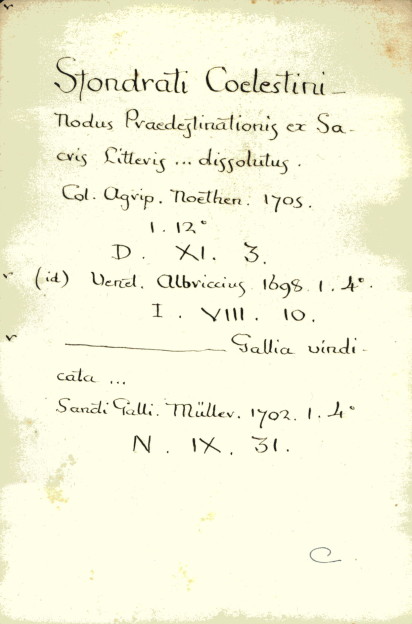 Sfondrati Coelestini –
Nodus Praedestinationis ex Sa-
cris Litteris ... dissolutus.
Col. Agrip. Noethen. 1705.
1. 12°
D. XI. 3.
(id) Venet. Albriccius 1698. 1. 4°.
I. VIII. 10.
———— Gallia vindi-
cata ...
Sancti Galli. Müller. 1702. 1. 4°
N. IX. 31.
C.